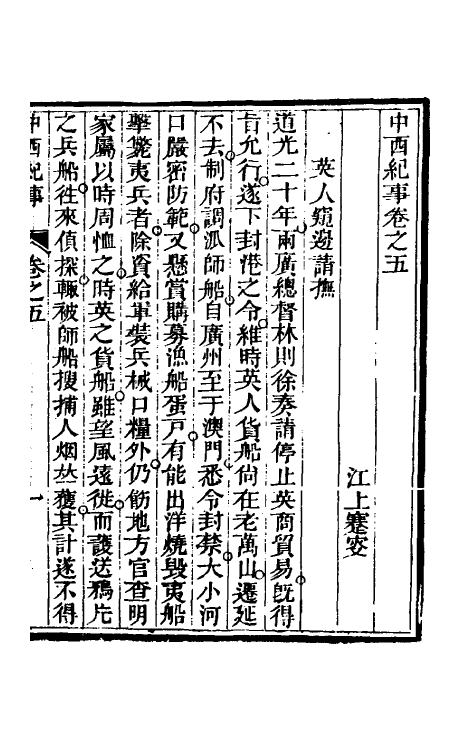 中西紀事卷之五
江上蹇叟
英人窺邊請撫
道光二十年兩廣總督林則徐奏請停止英商貿易旣得
旨允行遂下封港之令維時英人貨船尙在老萬山遷延
不去制府調派師船自廣州至于澳門悉令封禁大小河
口嚴密防範又懸賞購募漁船蛋戸有能出洋燒毀夷船
擊斃夷兵者除資給軍裝兵械口糧外仍飭地方官查明
家屬以時周恤之時英之貨船雖望風遠徙而護送鴉片
之兵船往來偵探輒被師船搜捕人烟並獲其計遂不得
中西紀事 卷之五 一